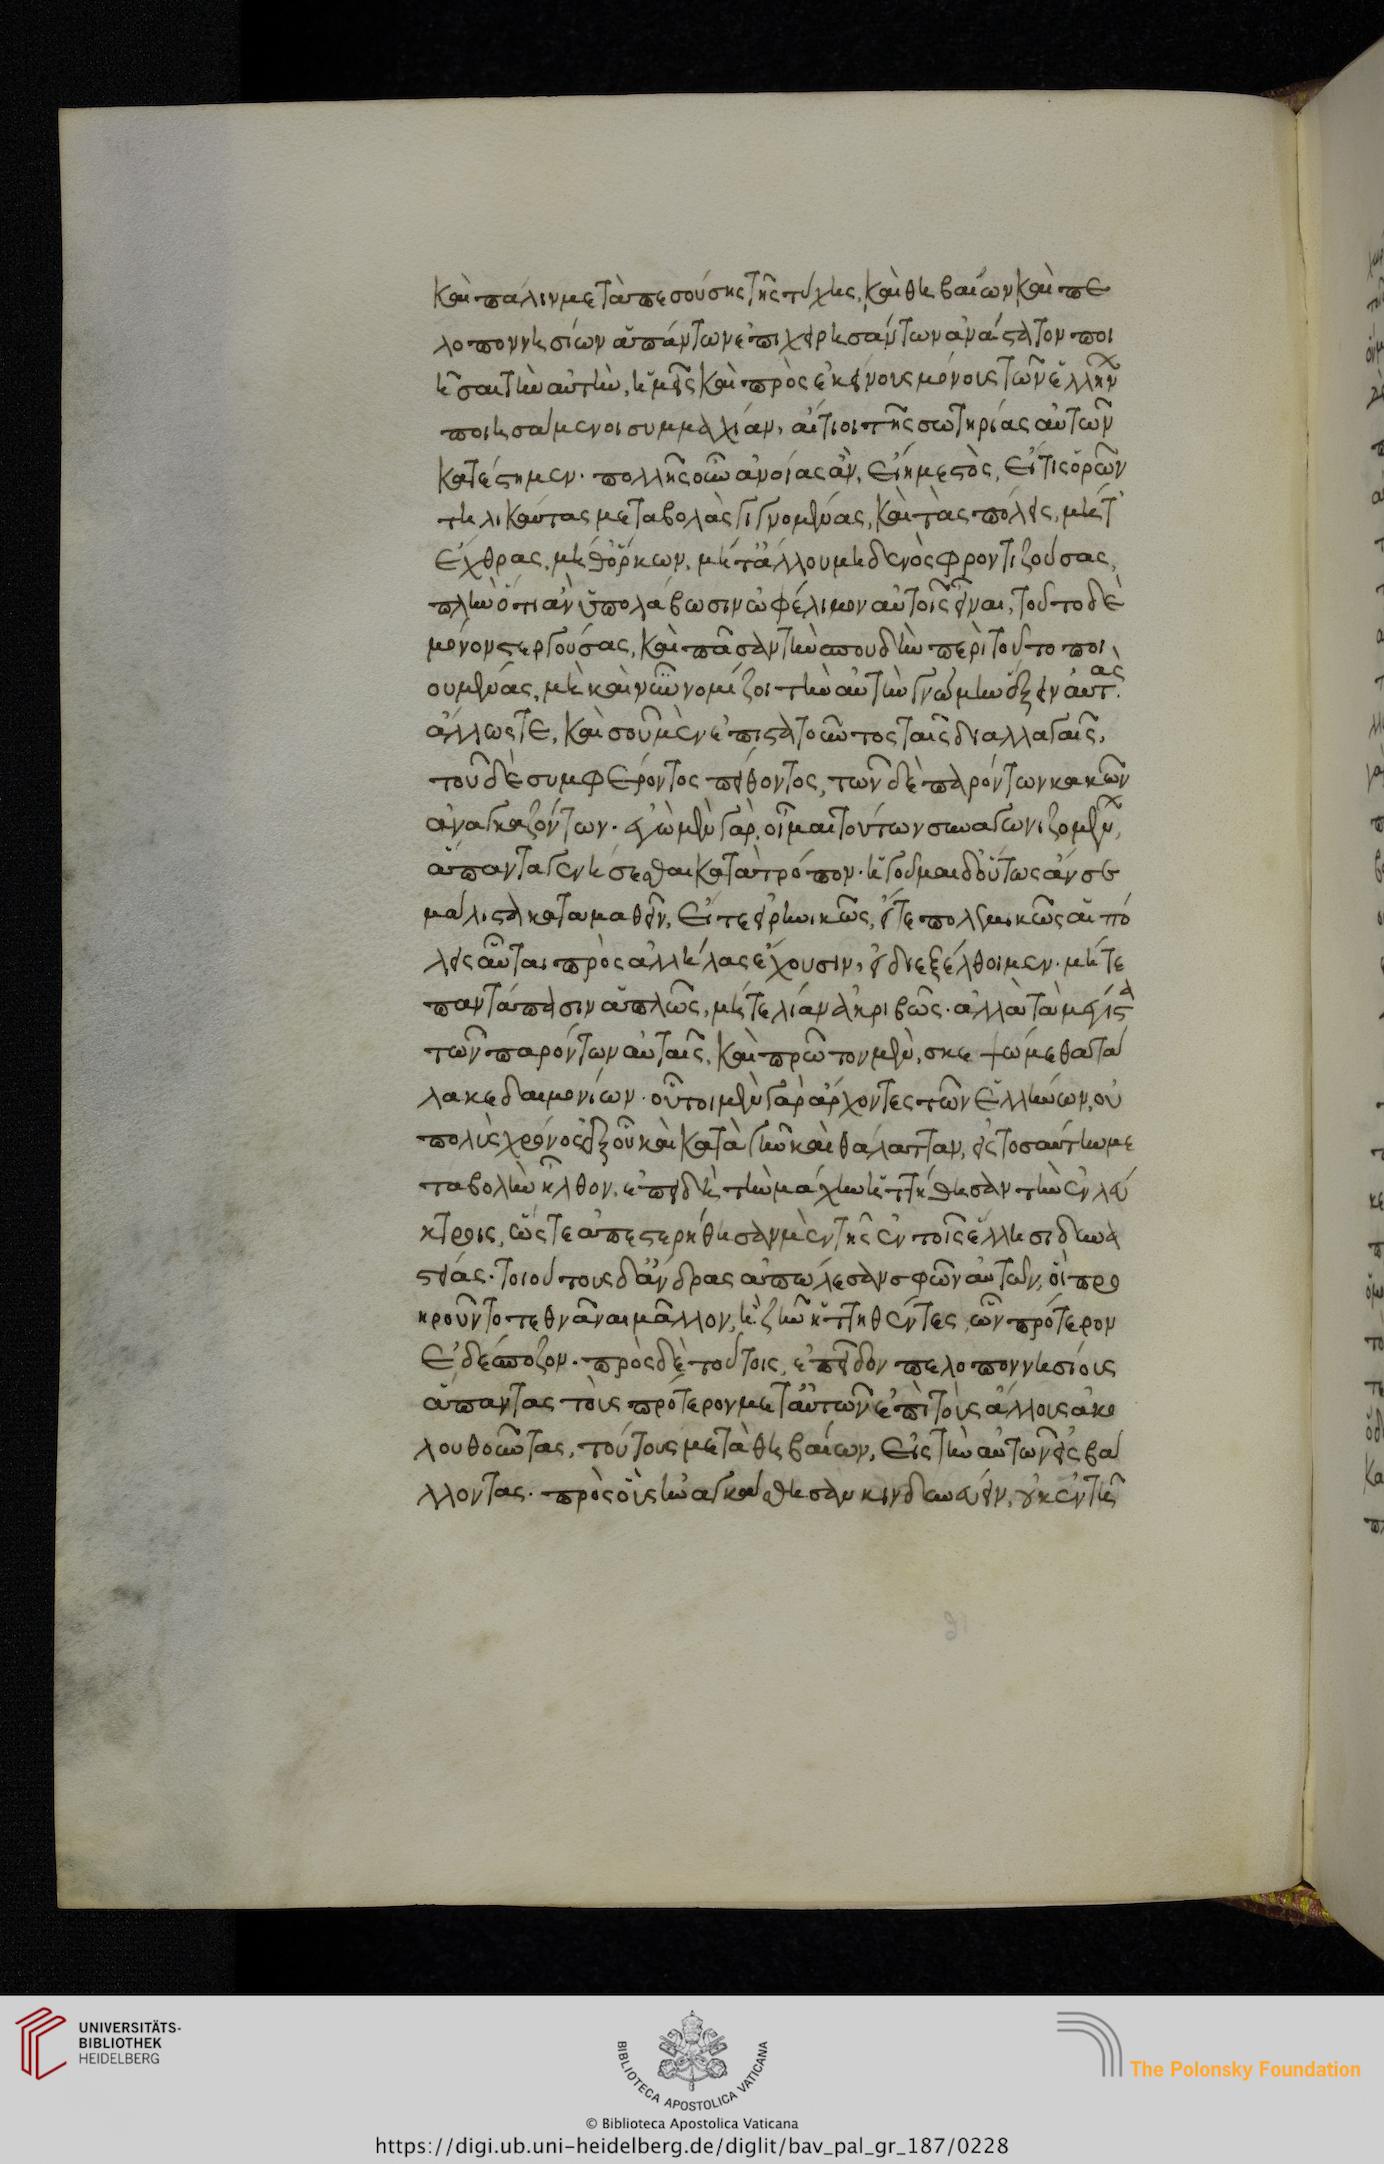 καὶ πάλιν μεταπεσούσης τῆς τύχης, καὶ θηβαίων καὶ πε
λοποννησίων ἁπάντων ἐπιχειρησάντων ἀνάστατον ποι
ῆσαι τὴν αὐτὴν, ἡμεῖς καὶ πρὸς ἐκείνους μόνοις τῶν ἑλλήν
ποιησάμενοι συμμαχίαν, αἴτιοι τῆς σωτηρίας αὐτῶν
κατέστημεν. πολλῆς οὖν ἀνοίας ἂν, εἴη μεστὸς, εἴ τις ὁρῶν
τηλικαύτας μεταβολὰς γιγνομένας, καὶ τὰς πόλεις, μήτ'
ἔχθρας, μήθ' ὅρκων, μήτ' ἄλλου μηδενὸς φροντιζούσας,
πλὴν ὅτι ἂν ὑπολάβωσιν ὠφέλιμον αὐτοῖς εἶναι, τοῦτο δὲ
μόνον στεργούσας, καὶ πᾶσαν τὴν σπουδὴν περὶ τοῦτο ποι
ουμένας, μὴ καὶ νῦν νομίζοι τὴν αὐτὴν γνώμην ἕξειν αὐτὰς.
ἄλλως τε, καὶ σοῦ μὲν ἐπιστατοῦντος ταῖς διαλλαγαῖς,
τοῦ δὲ συμφέροντος πείθοντος, τῶν δὲ παρόντων κακῶν
ἀναγκαζόντων. ἐγὼ μὲν γὰρ, οἶμαι τούτων συναγωνιζομένν,
ἅπαντα γενήσεσθαι κατὰ τρόπον. ἡγοῦμαι δ' οὕτως ἄν σε
μάλιστα καταμαθεῖν, εἴτε εἰρηνικῶς, εἴτε πολεμικῶς αἱ πό
λεις αὗται πρὸς ἀλλήλας ἔχουσιν, εἰ διεξέλθοιμεν. μήτε
παντάπασιν ἁπλῶς, μήτε λίαν ἀκριβῶς. ἀλλὰ τὰ μέγιστα
τῶν παρόντων αὐταῖς. καὶ πρῶτον μὲν, σκεψώμεθα τὰ
λακεδαιμονίων. οὗτοι μὲν γὰρ ἄρχοντες τῶν ἑλλήνων, οὐ
πολὺς χρόνος ἐξ οὗ καὶ κατὰ γῆν καὶ θάλατταν, εἰς τοσαύτην με
ταβολὴν ἦλθον, ἐπειδὴ τὴν μάχην ἡττήθησαν τὴν ἐν λεύ
κτροις, ὥστε ἀπεστερήθησαν μὲν τῆς ἐν τοῖς ἕλλησι δυνα
στείας. τοιούτους δ' ἄνδρας ἀπώλεσαν σφῶν αὐτῶν, οἳ προ
ῃροῦντο τεθνᾶναι μᾶλλον, ἢ ζῆν ἡττηθέντες ὧν πρότερον
ἐδέσποζον. πρὸς δὲ τούτοις, ἐπεῖδον πελοποννησίοις
ἅπαντας τοὺς πρότερον μετ' αὐτῶν ἐπὶ τοὺς ἄλλοις ἀκο
λουθοῦντας, τούτους μετὰ θηβαίων, εἰς τὴν αὐτῶν εἰσβά
λλοντας. πρὸς οὓς ἠναγκάσθησαν κινδυνεύειν, οὐκ ἐν τῆ
UNIVERSITÄTS-
BIBLIOTHEK
HEIDELBERG
BIBLIOTECA APOSTOLICA VATICANA
The Polonsky Foundation
© Biblioteca Apostolica Vaticana
https://digi.ub.uni-heidelberg.de/diglit/bav_pal_gr_187/0228